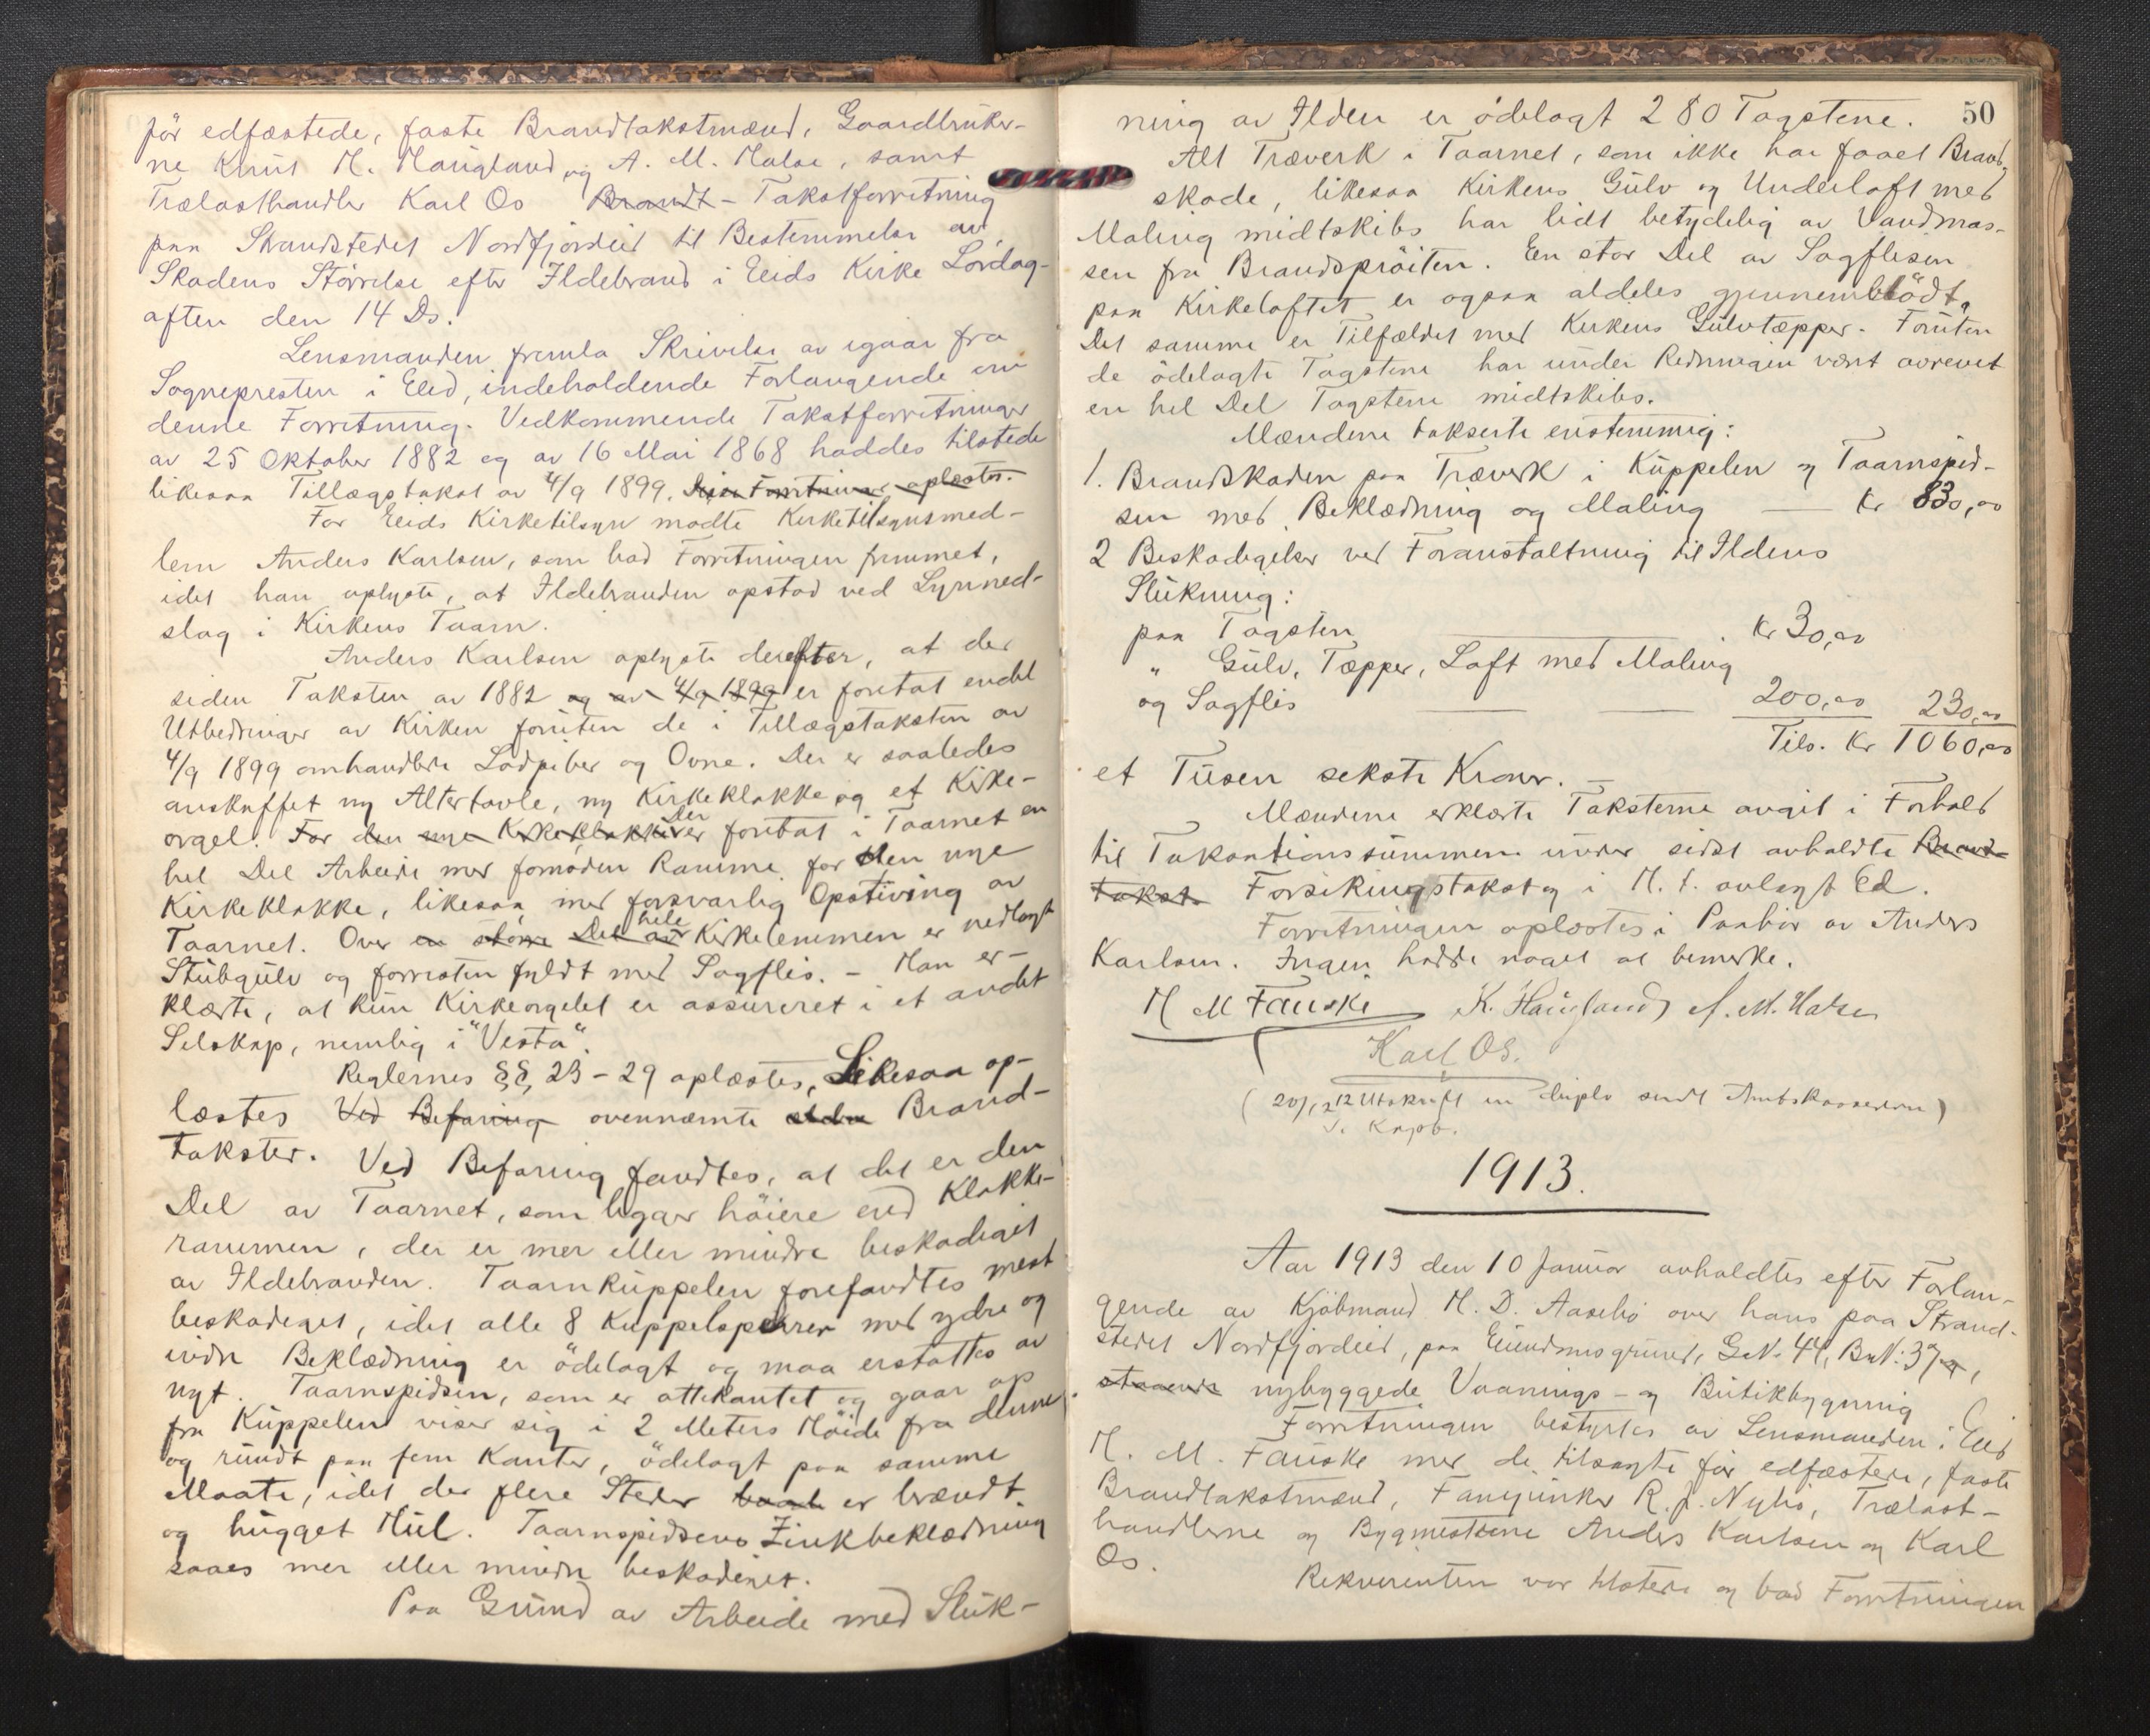 før edfæstede, faste Brandtakstmænd, Gaardbruker-
ne Knut H. Haugland og A. M. Halse, samt
Trælasthandler Karl Os Brandt-Takstforretning
paa Strandstedet Nordfjordeid til Bestemmelse av
Skadens Størrelse efter Ildebrand i Eids Kirke Lørdag-
aften den 14 Ds.
Lensmanden fremla Skrivelse av igaar fra
Sognepresten i Eid, indeholdende Forlangende om
denne Forretning. Vedkommende Takstforretninger
av 25 Oktober 1882 og av 16 Mai 1868 haddes tilstede
likesaa Tillægstakst av 4/9 1899. oplæstes.
For Eids Kirketilsyn mødte Kirketilsynsmed-
lem Anders Karlsen, som bad Forretningen fremmet,
idet han oplyste, at Ildebranden opstod ved Lynned-
slag i Kirkens Taarn.
Anders Karlsen oplyste derefter, at der
siden Taksten av 1882 og av 4/9 1899 er foretat endel
Utbedringer av Kirken foruten de i Tillægstaksten av
4/9 1899 omhandlete Lodpiber og Ovne. Der er saaledes
anskaffet ny Altertavle, ny Kirkeklokke og et Kirke-
orgel. For den nye Kirkeklokke Der er foretat i Taarnet en
hel Del Arbeide med fornøden Ramme for den nye
Kirkeklokke, likesaa med forsvarlig Opstiving av
Taarnet. Over en større Del av hele Kirkelemmen er nedlagt
Stubgulv og forresten fyldt med Sagflis. - Han er-
klærte, at kun Kirkeorgelet er assureret i et andet
Selskap, nemlig i "Vesta".
Reglernes §§ 23-29 oplæstes, Likesaa op-
læstes Ved Befaring ovennævnte Brand-
takster. Ved Befaring fandtes, at det er den
Del av Taarnet, som ligger høiere end Klokke-
rammen, der er mer eller mindre beskadiget
av Ildebranden. Taarnkuppelen forefandtes mest
beskadiget, idet alle 8 Kuppelsperrer med ydre og
indre Beklædning er ödelagt og maa erstattes av
nyt. Taarnspidsen, som er ottekantet og gaar op
fra Kuppelen viser sig i 2 Meters Høide fra denne
og rundt paa fem Kanter, ödelagt paa samme
Maate, idet der flere Steder er brændt
og hugget Hul. Taarnspidsens Zinkbeklædning
saaes mer eller mindre beskadiget.
Paa Grund av Arbeide med Sluk-
50
ning av Ilden er ödelagt 280 Tagstene.
Alt Træverk i Taarnet, som ikke har faaet Brand-
skade, likesaa Kirkens Gulv og Underloft med
Maling midtskibs har lidt betydelig av Vandmas-
sen fra Brandsprøiten. En stor Del av Sagflisen
paa Kirkeloftet er ogsaa aldeles gjennemblödt.
Det samme er Tilfældet med Kirkens Gulvtæpper. Foruten
de ödelagte Tagstene har under Redningen været avrevet
en hel Del Tagstene midtskibs.
Mændene takserte enstemmig:
1. Brandskaden paa Træverk i Kuppelen og Taarnspid-
sen med Beklædning og Maling — Kr 830,00
2 Beskadigelser ved Foranstaltning til Ildens
Slukning:
paa Tagsten Kr 30,00
" Gulv, Tæpper, Loft med Maling
og Sagflis — — 200,00 230,00
Tils. Kr 1060,00
et Tusen seksti Kroner. —
Mændene erklærte Taksterne avgit i Forhold
til Takastionssummen under sidst avholdte Brand-
takst. Forsikringstakst og i H. t. avlagt Ed.
Forretningen oplæstes i Paahør av Anders
Karlsen. Ingen hadde noget at bemerke.
H M Fauske K. Haugland A. M. Halse
Karl Os.
(20/12 12 Utskrift in duplo sendt Amtskassereren)
1913.
Aar 1913 den 10 Januar avholdtes efter Forlan-
gende av Kjøbmand H. D. Aasebø over hans paa Strand-
stedet Nordfjordeid, paa Eiendomsgrund, G.N. 44, B.N: 37,
staaende nybyggede Vaanings- og Butikbygning
Forretningen bestyrtes av Lensmanden i Eid
H. M. Fauske med de tilsagte før edfæstede, faste
Brandtakstmænd, Fanejunker R. J. Nybø, Trælast-
handlerne og Bygmestrene Anders Karlsen og Karl
Os.
Rekvirenten var tilstede og bad Forretningen